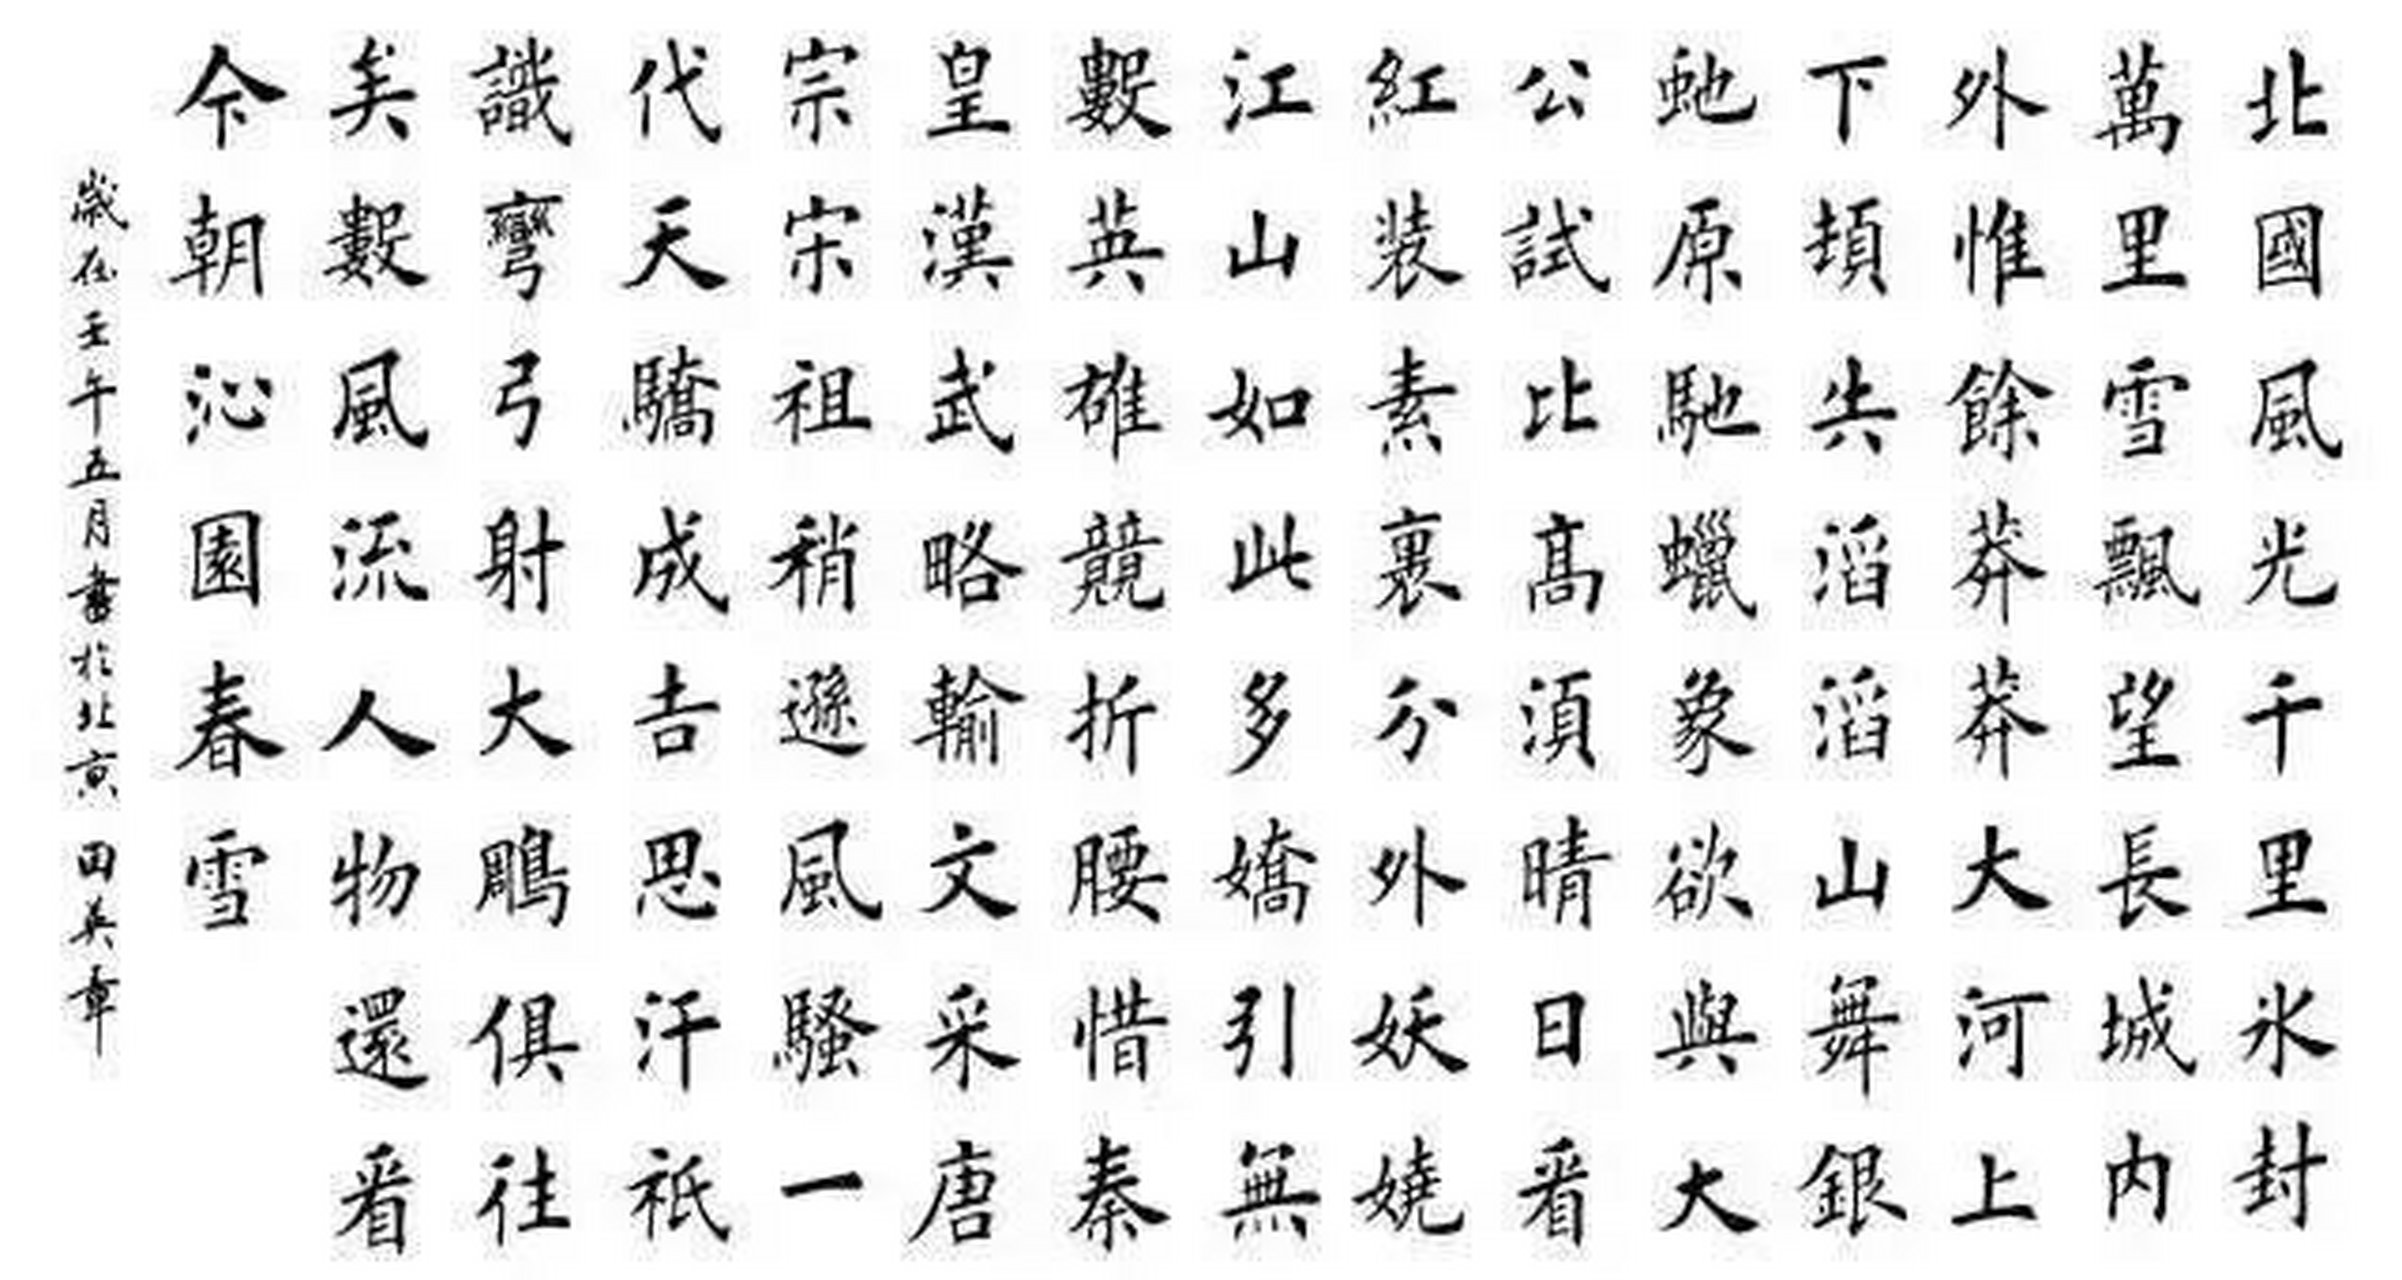 北國風光千里氷封
萬里雪飄望長城内
外惟餘莽莽大河上
下頓失滔滔山舞銀
虵原馳蠟象欲與大
公試比高須晴日看
紅装素裹分外妖嬈
江山如此多嬌引無
數英雄競折腰惜秦
皇漢武略輸文采唐
宗宋祖稍遜風騷一
代天驕成吉思汗祇
識彎弓射大鵰俱往
矣數風流人物還看
今朝沁園春雪
歲在壬午五月書於北京田英章